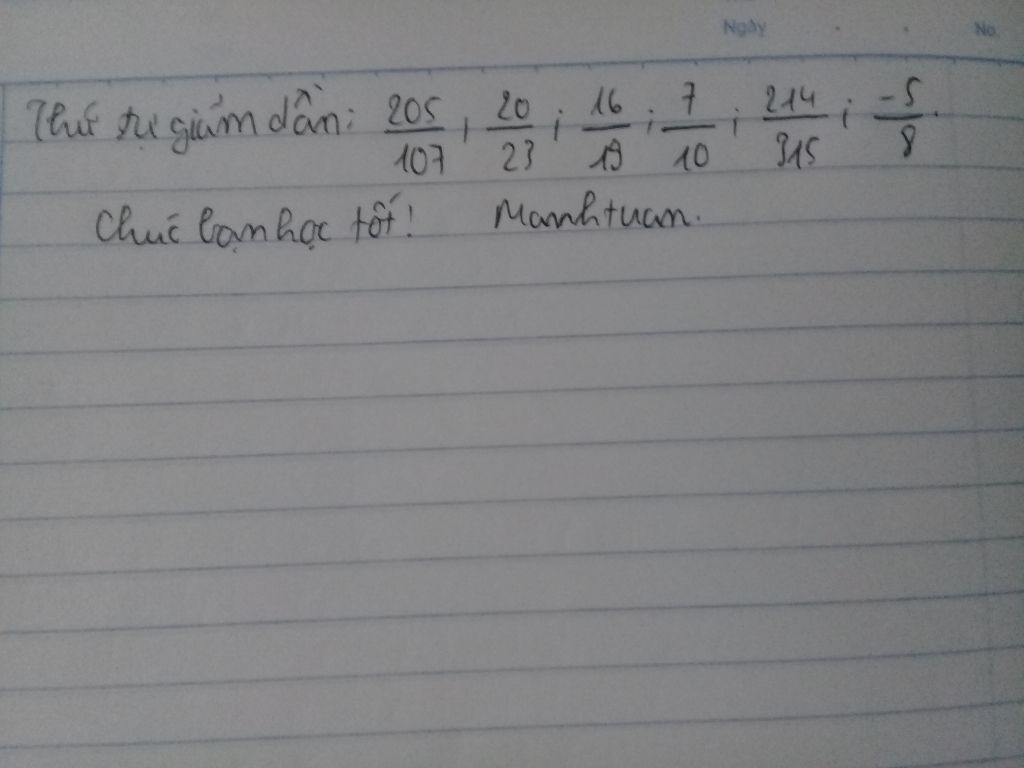 Ngày No
Thứ tự giảm dần: 205/107; 20/23; 16/19; 7/10; 214/315; -5/8.
Chúc bạn học tốt! Manhtuan.